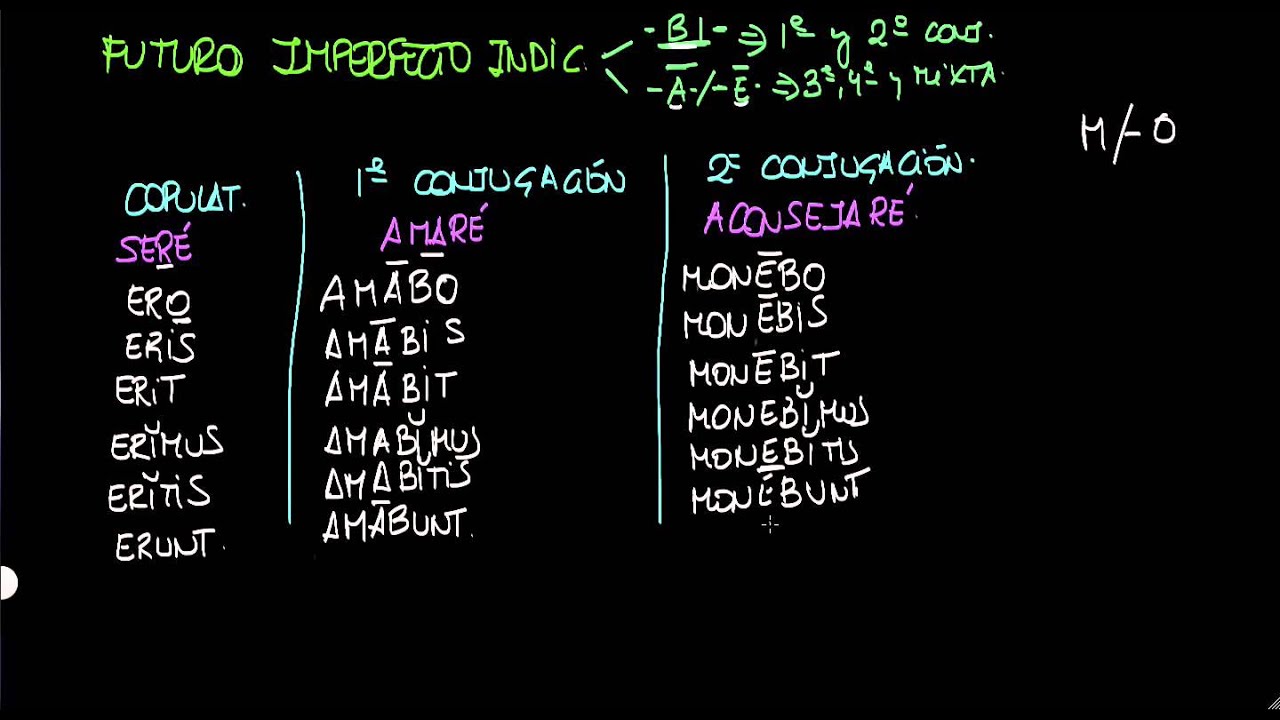 FUTURO IMPERFECTO INDIC. -BI- ⇒ 1ª y 2ª CONJ.
-Ā-/-Ē- ⇒ 3ª, 4ª y MIXTA.
M/-O
COPULAT.
SERÉ
ERO
ERIS
ERIT
ERĬMUS
ERĬTIS
ERUNT.
1ª CONJUGACIÓN
AMARÉ
AMĀBO
AMĀBIS
AMĀBIT
AMABĬMUS
AMABĬTIS
AMĀBUNT.
2ª CONJUGACIÓN.
ACONSEJARÉ.
MONĒBO
MONĒBIS
MONĒBIT
MONEBĬMUS
MONEBĬTIS
MONĒBUNT